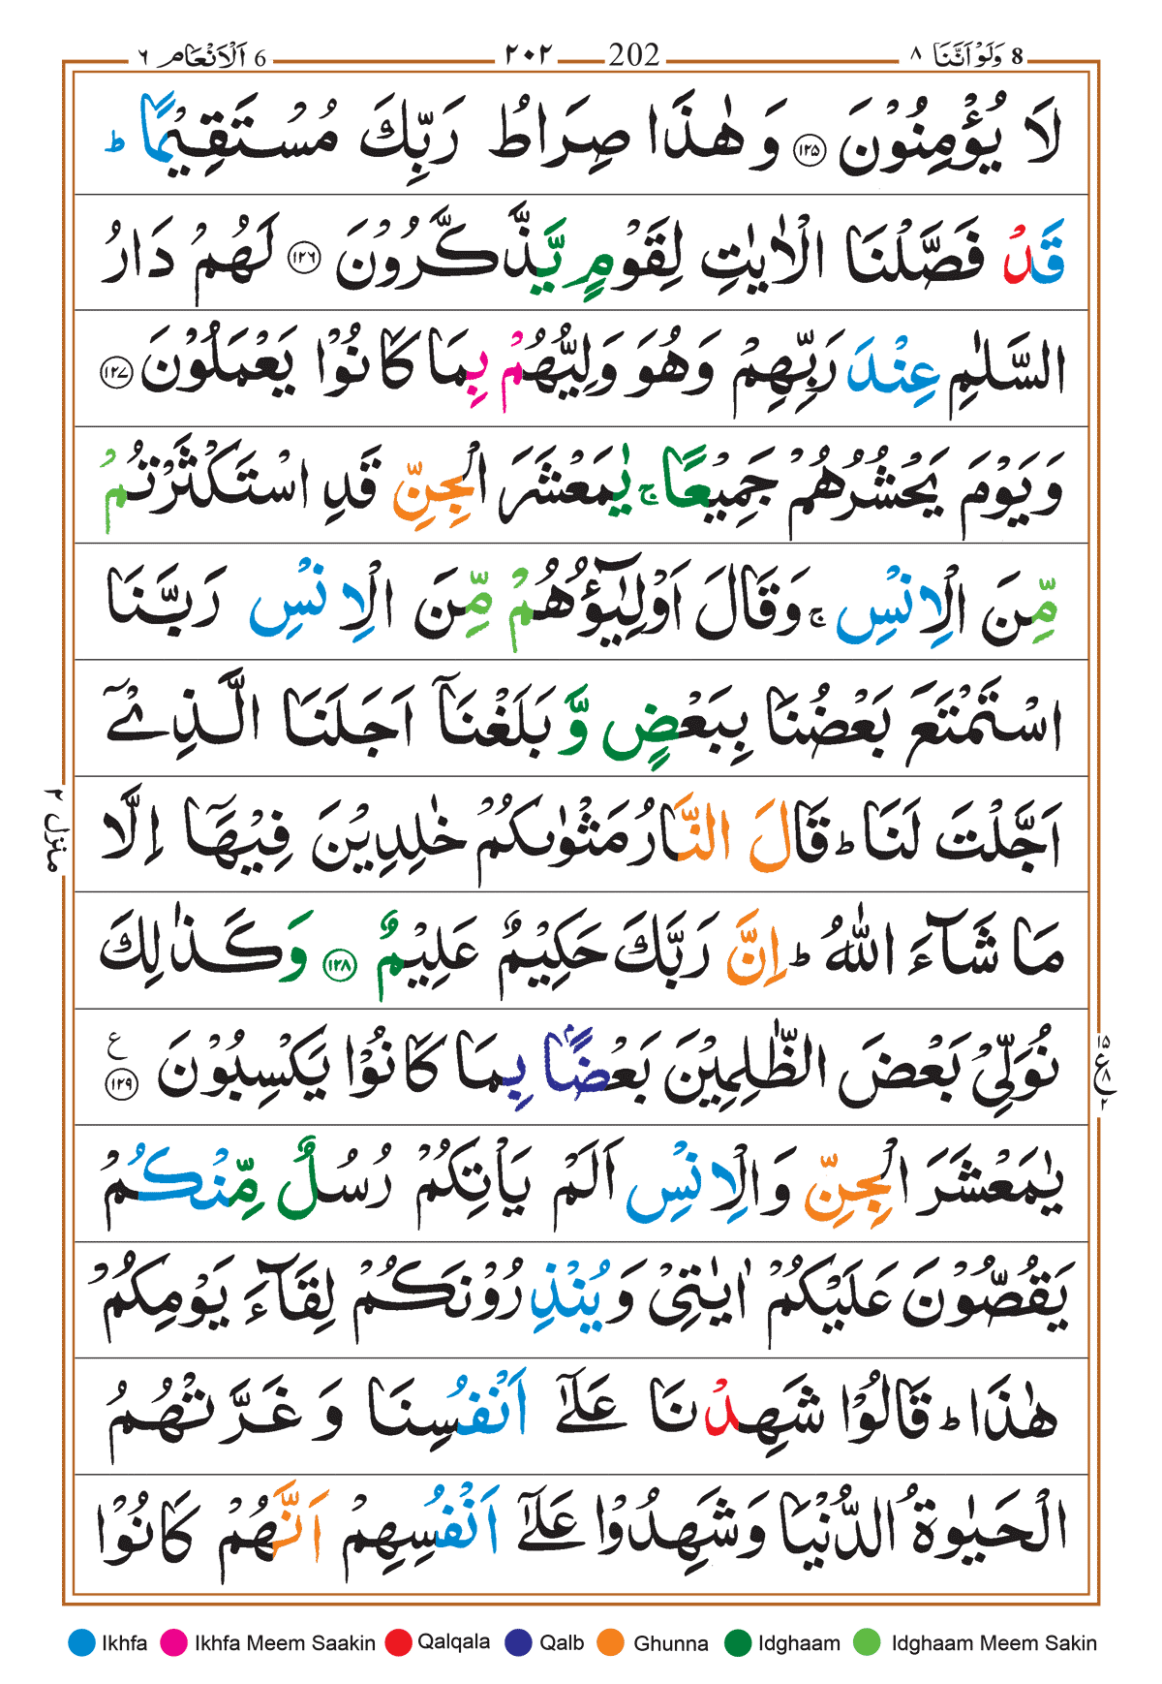 8 وَلَوْ اَنَّنَا ٨ 202 ٢٠٢ 6 اَلْاَنْعَام ٦
لَا يُؤْمِنُوْنَ ١٢٥ وَهٰذَا صِرَاطُ رَبِّكَ مُسْتَقِيْمًا ؕ
قَدْ فَصَّلْنَا الْاٰيٰتِ لِقَوْمٍ يَّذَّكَّرُوْنَ ١٢٦ لَهُمْ دَارُ
السَّلٰمِ عِنْدَ رَبِّهِمْ وَهُوَ وَلِيُّهُمْ بِمَا كَانُوْا يَعْمَلُوْنَ ١٢٧
وَيَوْمَ يَحْشُرُهُمْ جَمِيْعًا ۚ يٰمَعْشَرَ الْجِنِّ قَدِ اسْتَكْثَرْتُمْ
مِّنَ الْاِنْسِ ۚ وَقَالَ اَوْلِيٰٓؤُهُمْ مِّنَ الْاِنْسِ رَبَّنَا
اسْتَمْتَعَ بَعْضُنَا بِبَعْضٍ وَّ بَلَغْنَاۤ اَجَلَنَا الَّذِيْۤ
اَجَّلْتَ لَنَا ؕ قَالَ النَّارُ مَثْوٰىكُمْ خٰلِدِيْنَ فِيْهَاۤ اِلَّا
مَا شَآءَ اللّٰهُ ؕ اِنَّ رَبَّكَ حَكِيْمٌ عَلِيْمٌ ١٢٨ وَكَذٰلِكَ
نُوَلِّيْ بَعْضَ الظّٰلِمِيْنَ بَعْضًۢا بِمَا كَانُوْا يَكْسِبُوْنَ ١٢٩ ع
يٰمَعْشَرَ الْجِنِّ وَالْاِنْسِ اَلَمْ يَاْتِكُمْ رُسُلٌ مِّنْكُمْ
يَقُصُّوْنَ عَلَيْكُمْ اٰيٰتِيْ وَيُنْذِرُوْنَكُمْ لِقَآءَ يَوْمِكُمْ
هٰذَا ؕ قَالُوْا شَهِدْنَا عَلٰۤى اَنْفُسِنَا وَغَرَّتْهُمُ
الْحَيٰوةُ الدُّنْيَا وَشَهِدُوْا عَلٰۤى اَنْفُسِهِمْ اَنَّهُمْ كَانُوْا
منزل ٢
١٥ ع ٨ ٢
Ikhfa Ikhfa Meem Saakin Qalqala Qalb Ghunna Idghaam Idghaam Meem Sakin